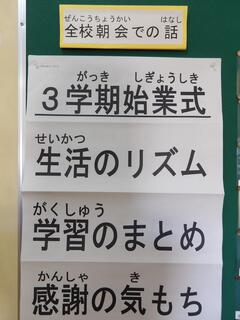 ぜんこうちょうかい はなし
全校朝会での話
がっき しぎょうしき
3学期始業式
せいかつ
生活のリズム
がくしゅう
学習のまとめ
かんしゃ き
感謝の気もち